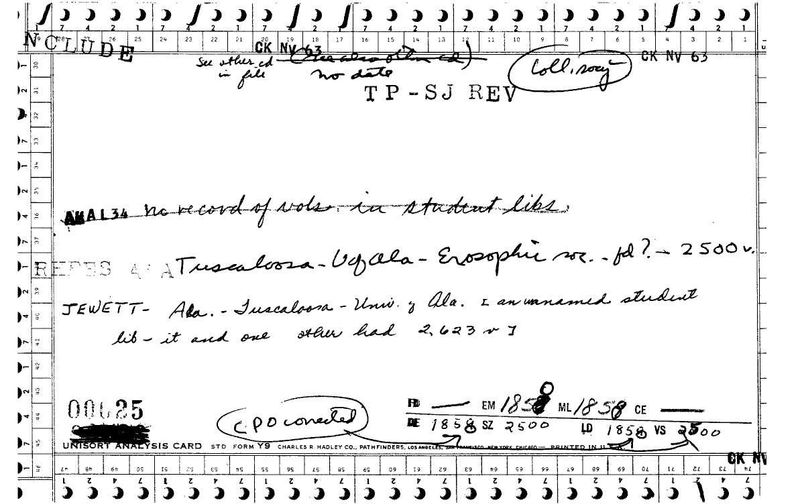 NCLUDE
CK NV 63
CK NV 63
(See also other cd)
See other cd
in file
no date
Coll. socy
TP-SJ REV
AHAL34 no record of vols. in student libs.
REFES ALA Tuscaloosa - U of Ala - Erosophic soc. - fd ? - 2500 v.
JEWETT - Ala. - Tuscaloosa - Univ. of Ala. [ an unnamed student
lib - it and one other had 2,623 v ]
00025
CPO corrected
FD — EM 1858 ML 1858 CE —
DE 1858 SZ 2500 LD 1858 VS 2500
UNISORT ANALYSIS CARD STD FORM Y9 CHARLES R. HADLEY CO., PATHFINDERS, LOS ANGELES, SAN FRANCISCO, NEW YORK, CHICAGO — PRINTED IN U.S.A.
CK NV